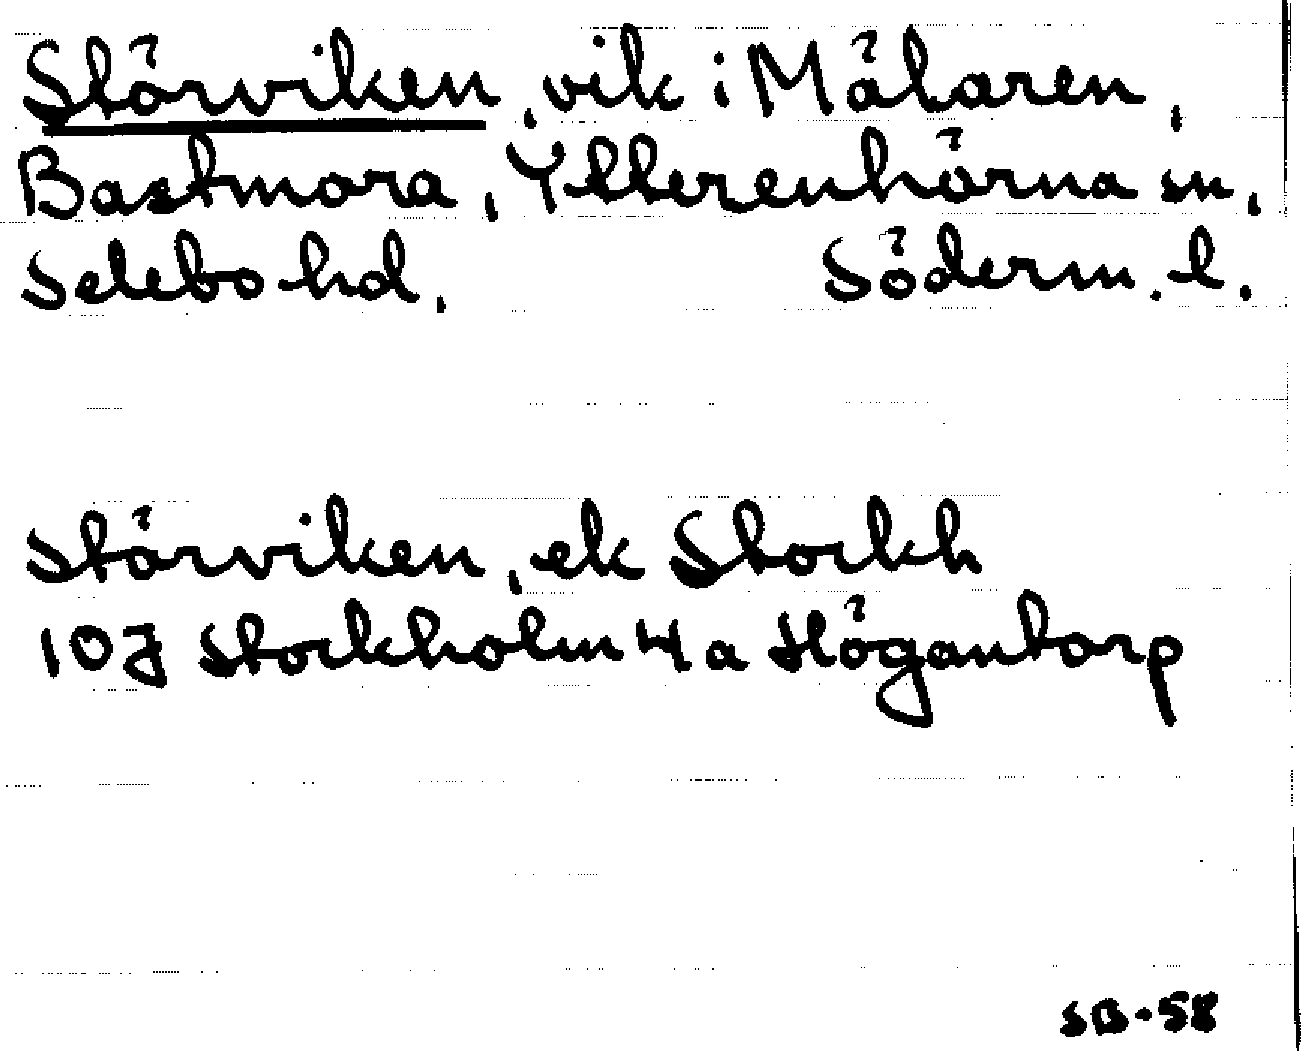 Störviken, vik i Mälaren,
Bastmora, Ytterenhörna sn,
Selebo hd. Söderm. l.
Störviken, ek Stockh
10J Stockholm 4a Högantorp
SB-58